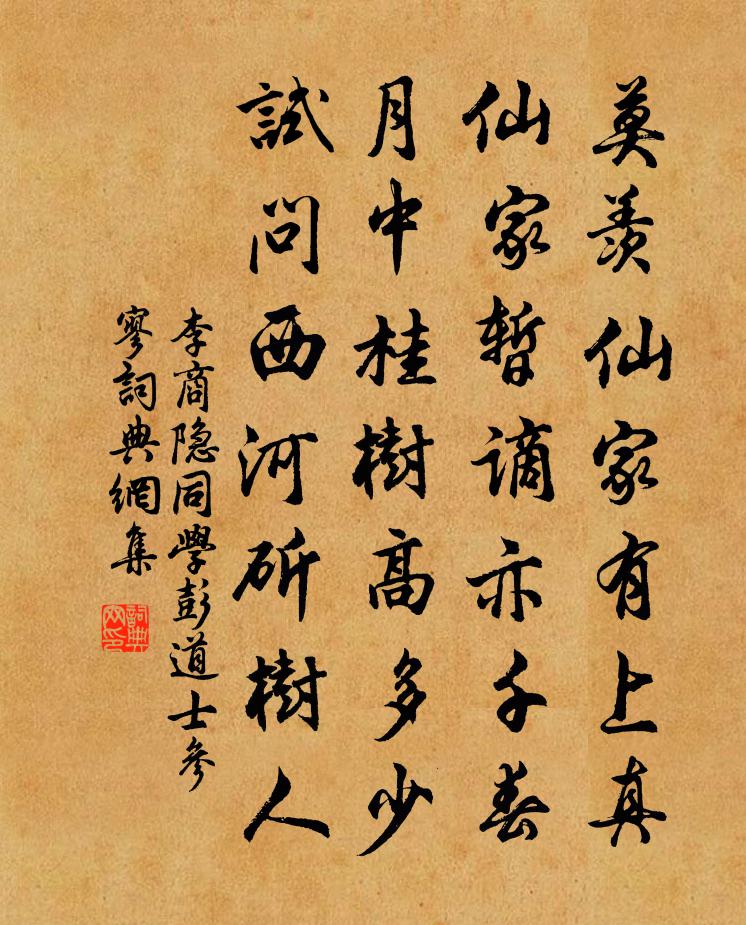 莫羨仙家有上真
仙家暫謫亦千春
月中桂樹高多少
試問西河斫樹人
李商隐同學彭道士參
寥詞典網集
詞典網印